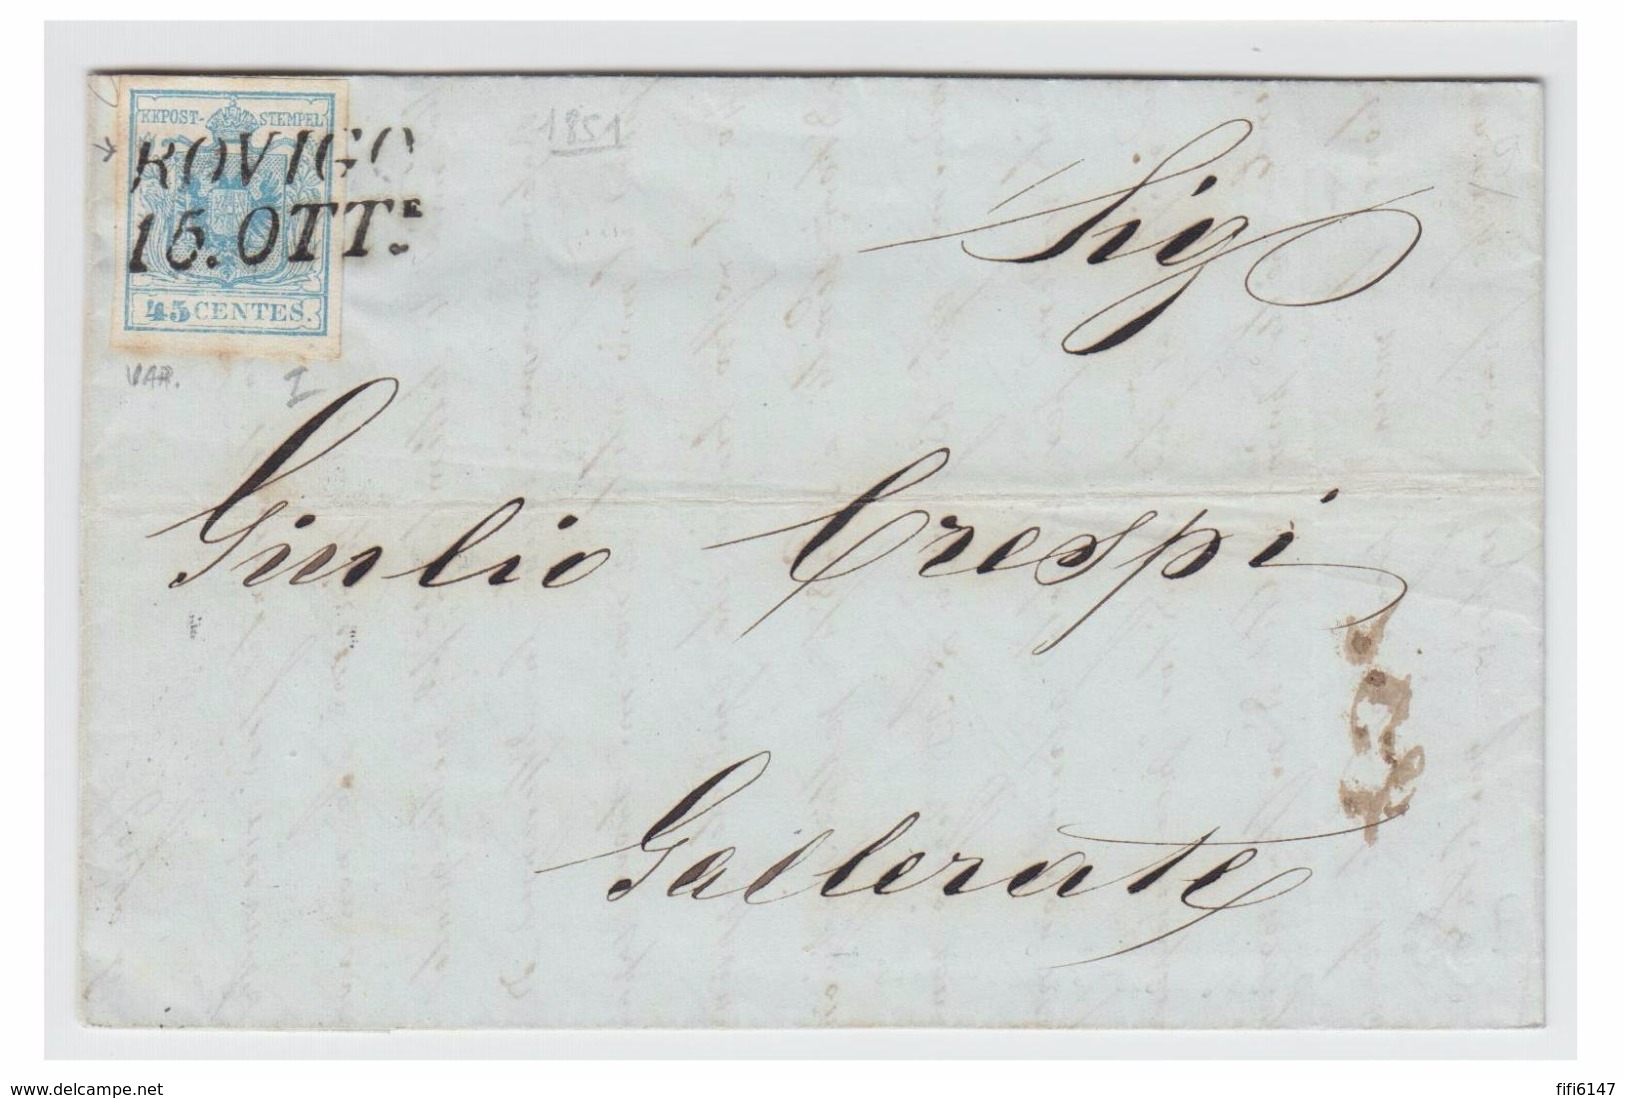 1851
KKPOST-STEMPEL
ROVIGO
15. OTTE.
45 CENTES.
VAR. I
Sig
Giulio Crespi
Gallerate
www.delcampe.net
fifi6147